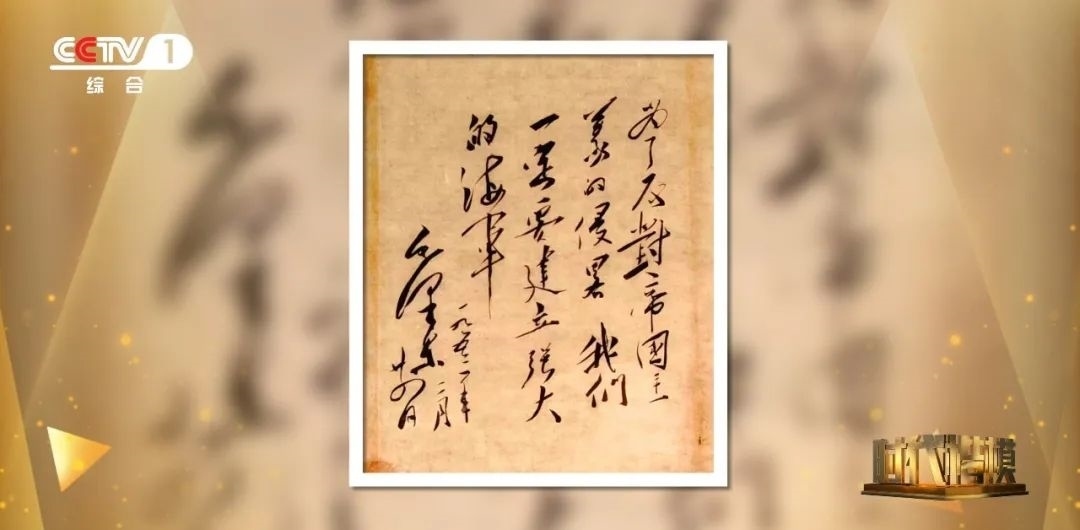 CCTV 1
综合
为了反對帝國主
義的侵畧 我們
一定要建立强大
的海軍
毛澤东
一九五三年
二月
廿四日
时代楷模